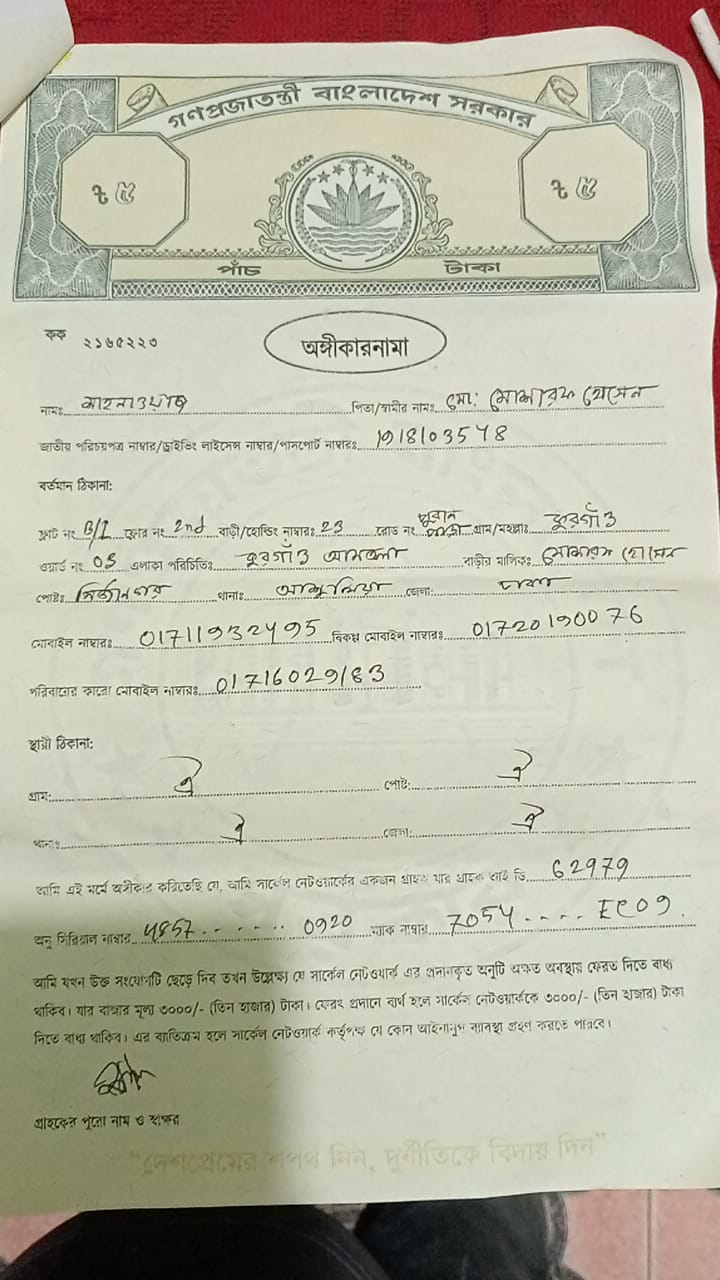 গণপ্রজাতন্ত্রী বাংলাদেশ সরকার
৳ ৫ ৳ ৫
পাঁচ টাকা
কক ২১৬৫২২৩
অঙ্গীকারনামা
নামঃ শাহনাওয়াজ পিতা/স্বামীর নামঃ মো: মোশারফ হোসেন
জাতীয় পরিচয়পত্র নাম্বার/ড্রাইভিং লাইসেন্স নাম্বার/পাসপোর্ট নাম্বারঃ
বর্তমান ঠিকানা:
ফ্লাট নং B/1 ফ্লোর নং 2nd বাড়ী/হোল্ডিং নাম্বারঃ 23 রোড নং পুরান পাড়া গ্রাম/মহল্লাঃ কুরগাঁও
ওয়ার্ড নং 05 এলাকা পরিচিতিঃ কুরগাঁও আমতলা বাড়ীর মালিকঃ মোশারফ হোসেন
পোষ্টঃ মির্জানগর থানাঃ আশুলিয়া জেলা: ঢাকা
মোবাইল নাম্বারঃ 01711932495 বিকল্প মোবাইল নাম্বারঃ 01720190076
পরিবারের কারো মোবাইল নাম্বারঃ 01716029163
স্থায়ী ঠিকানা:
গ্রাম: ঐ পোষ্ট: ঐ
থানাঃ ঐ জেলা: ঐ
আমি এই মর্মে অঙ্গীকার করিতেছি যে, আমি সার্কেল নেটওয়ার্কের একজন গ্রাহক যার গ্রাহক আই ডি 62979
অনু সিরিয়াল নাম্বার 4857........0920 ম্যাক নাম্বার 7054....EC09.
আমি যখন উক্ত সংযোগটি ছেড়ে দিব তখন উল্লেক্ষ্য যে সার্কেল নেটওয়ার্ক এর প্রদানকৃত অনুটি অক্ষত অবস্থায় ফেরত দিতে বাধ্য
থাকিব। যার বাজার মূল্য ৩০০০/- (তিন হাজার) টাকা। ফেরৎ প্রদানে ব্যর্থ হলে সার্কেল নেটওয়ার্ককে ৩০০০/- (তিন হাজার) টাকা
দিতে বাধ্য থাকিব। এর ব্যতিক্রম হলে সার্কেল নেটওয়ার্ক কর্তৃপক্ষ যে কোন আইনানুগ ব্যবস্থা গ্রহণ করতে পারবে।
গ্রাহকের পুরো নাম ও স্বাক্ষর
"দেশপ্রেমের শপথ নিন, দুর্নীতিকে বিদায় দিন"